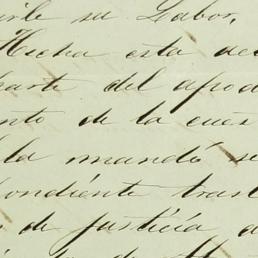 irle su Labor,
Hecha esta de
parte del apod
nto de la cues
la mandó se
pondiente trasl
de justicia